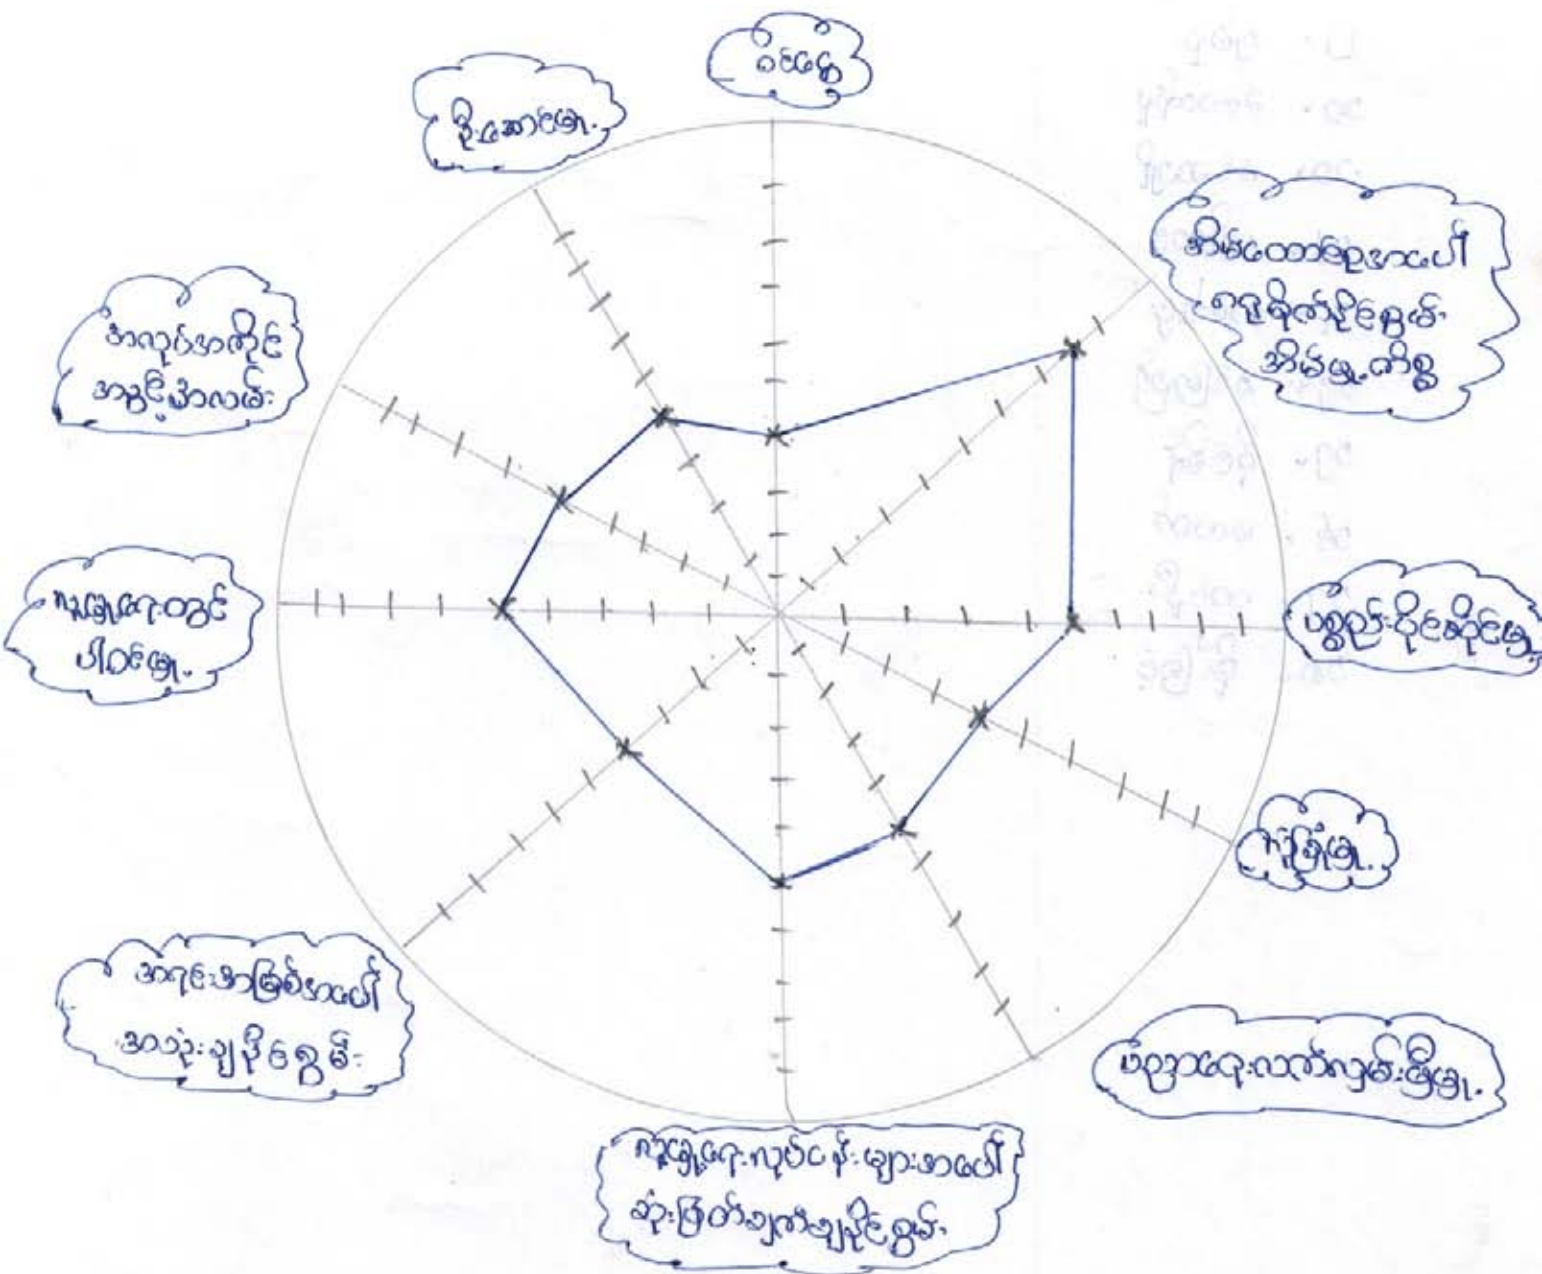 ဝင်ငွေ
အိမ်ထောင်စုအပေါ်
ဂရုစိုက်နိုင်စွမ်း
အိမ်မှုကိစ္စ
ပစ္စည်းပိုင်ဆိုင်မှု
လုံခြုံမှု
ပညာရေးလက်လှမ်းမှီမှု
လူမှုရေးလုပ်ငန်းများအပေါ်
ဆုံးဖြတ်ချက်ချနိုင်စွမ်း
အရင်းအမြစ်အပေါ်
အသုံးချနိုင်စွမ်း
လူမှုရေးတွင်
ပါဝင်မှု
အလုပ်အကိုင်
အခွင့်အလမ်း
ဦးဆောင်မှု